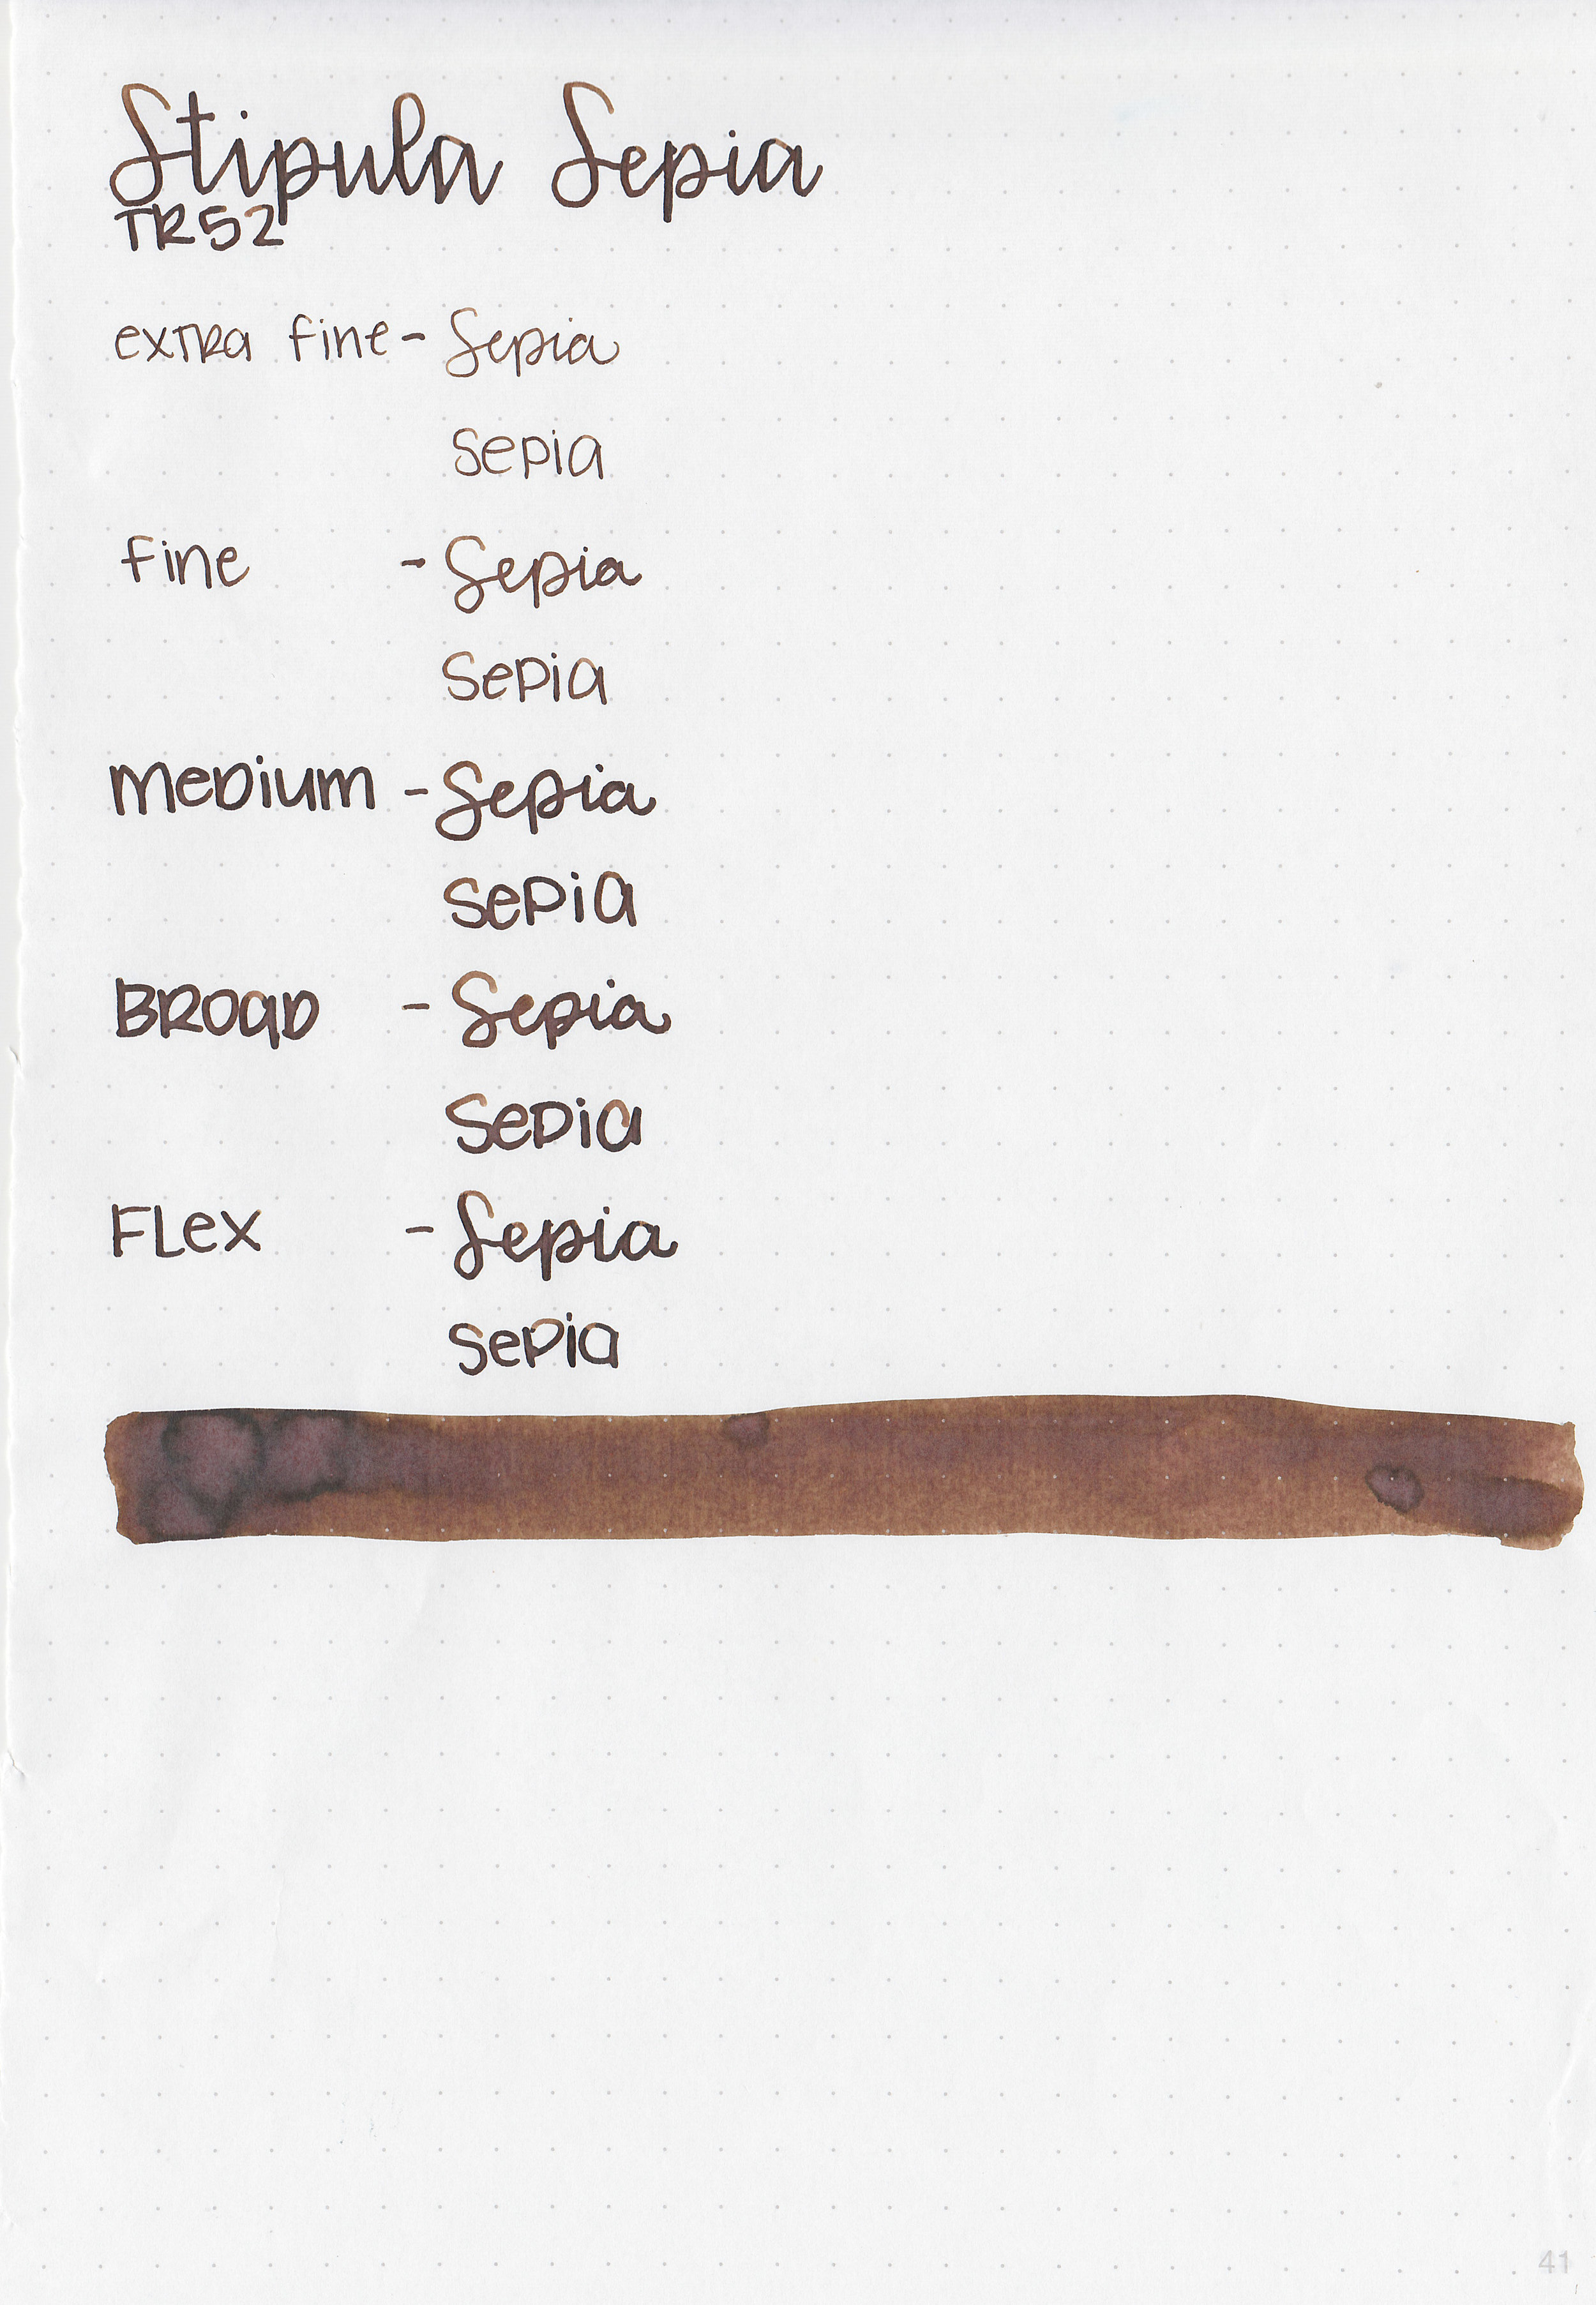 Stipula Sepia
TR52
extra fine - Sepia
sepia
fine - Sepia
sepia
medium - Sepia
sepia
Broad - Sepia
sepia
Flex - Sepia
sepia
41